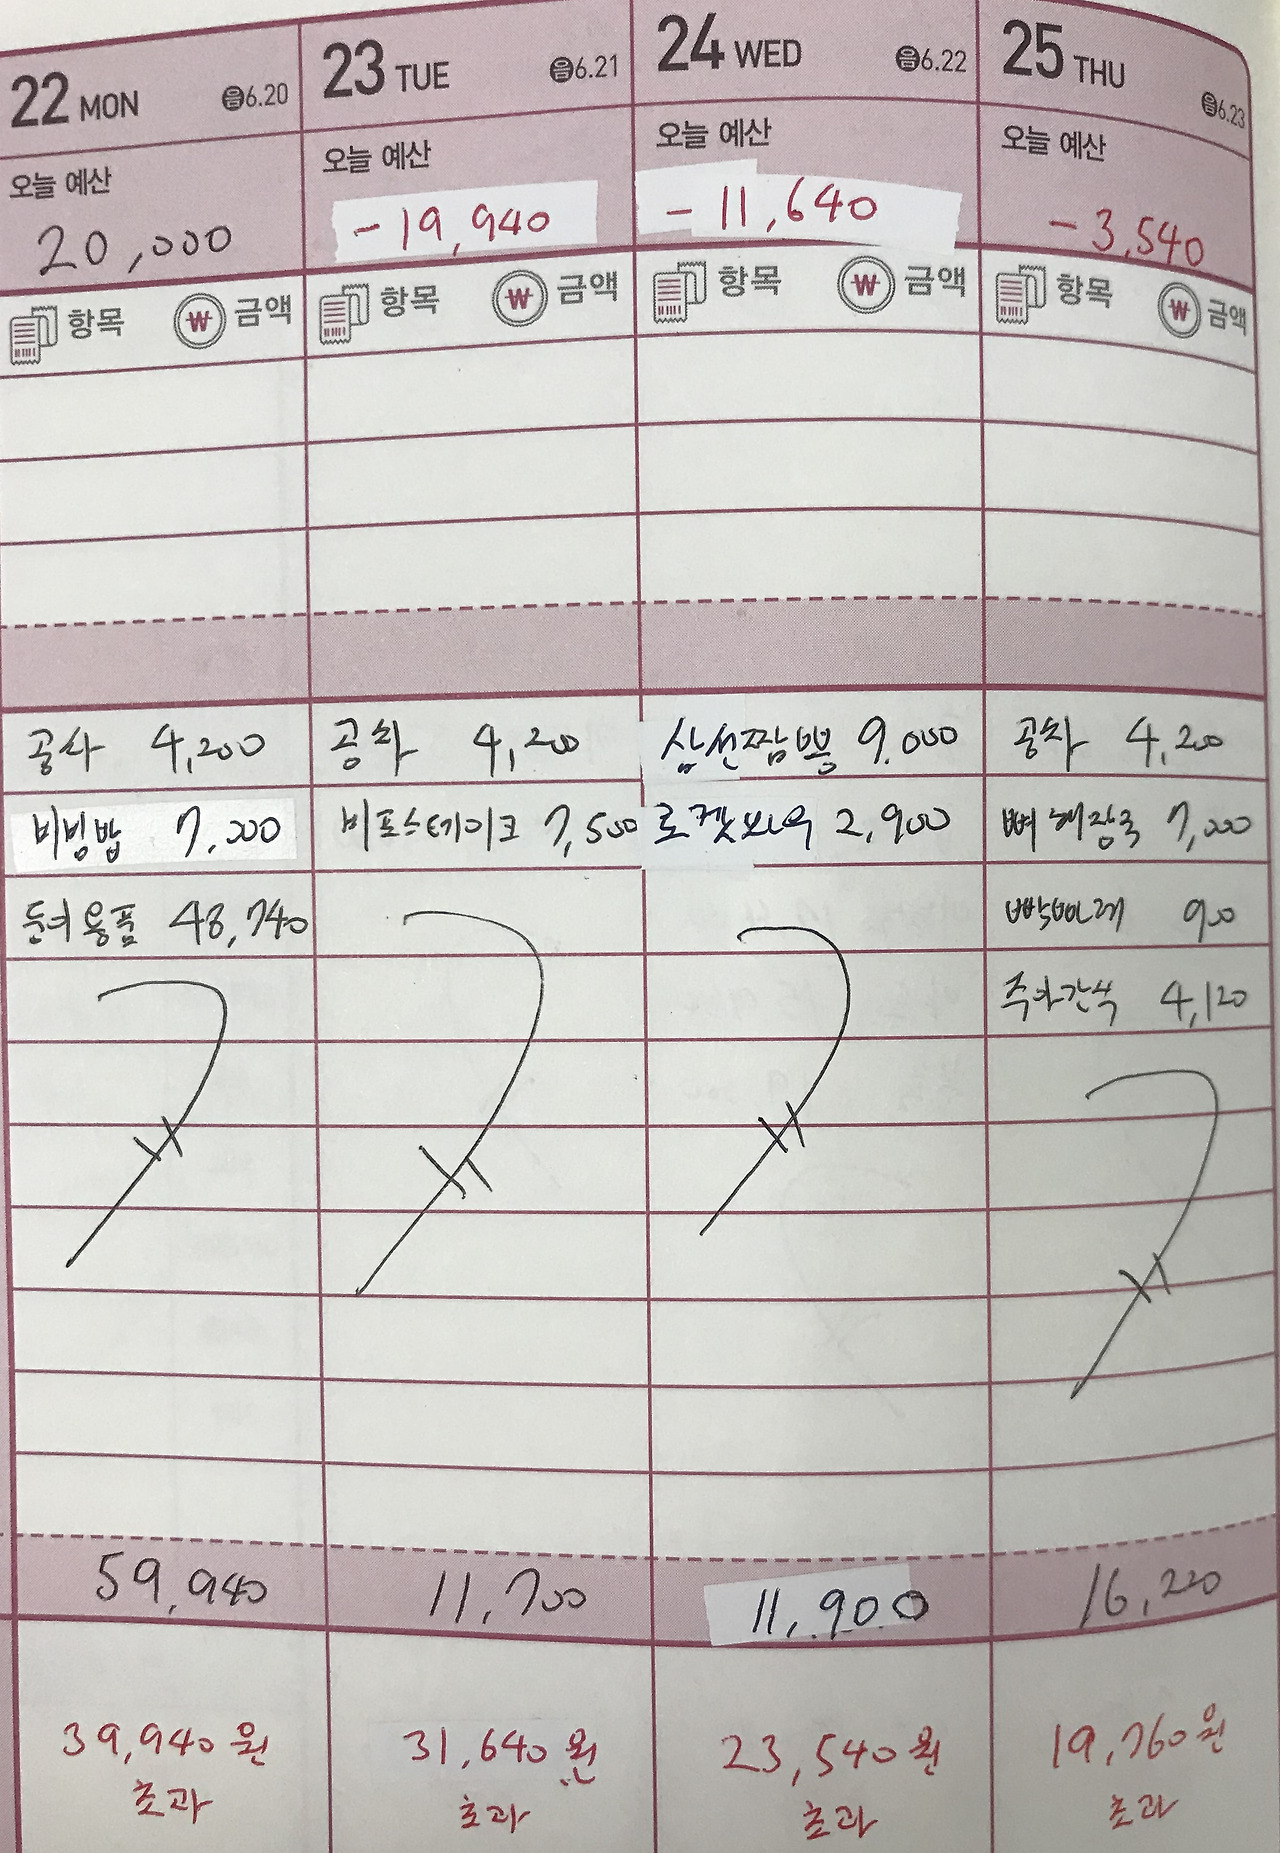 22 MON 음6.20
오늘 예산
20,000
항목 ₩ 금액
공차 4,200
비빙밥 7,000
48,740
59,940
39,940원
초과
23 TUE 음6.21
오늘 예산
-19,940
항목 ₩ 금액
공차 4,200
비프스테이크 7,500
11,700
31,640원
초과
24 WED 음6.22
오늘 예산
-11,640
항목 ₩ 금액
삼선짬뽕 9,000
로켓와우 2,900
11,900
23,540원
초과
25 THU 음6.23
오늘 예산
-3,540
항목 ₩ 금액
공차 4,200
뼈해장국 7,000
빡빠레 900
주야간식 4,120
16,220
19,760원
초과